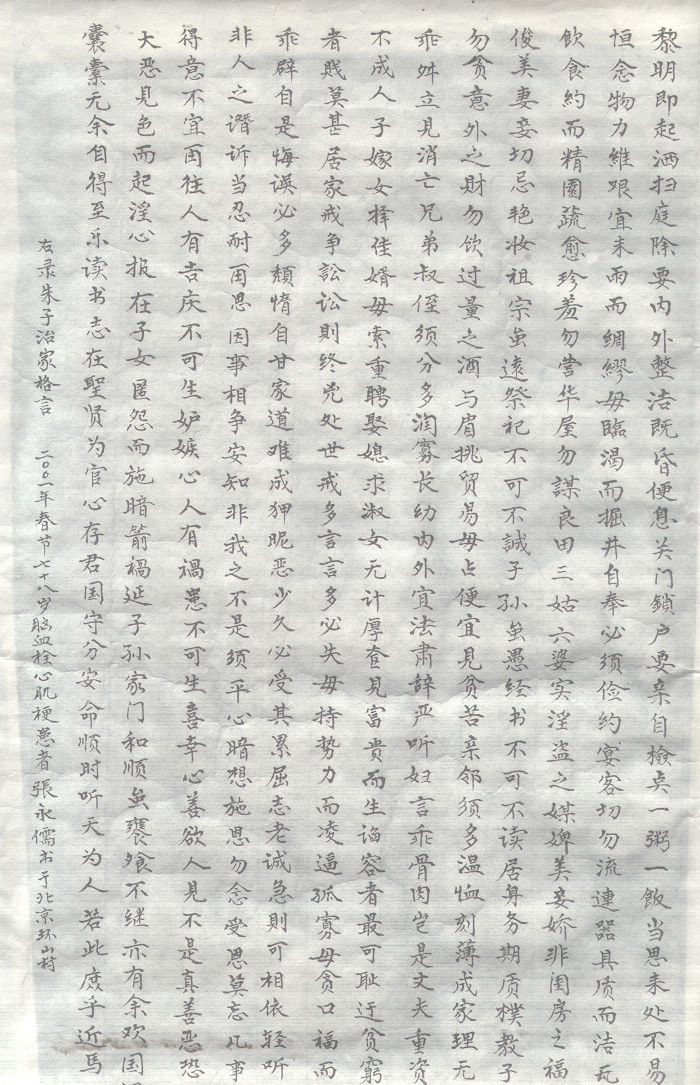 黎明即起洒扫庭除要内外整洁既昏便息关门鎖户要亲自検点一粥一飯当思来处不易
恒念物力維艰宜未雨而綢繆毋臨渴而掘井自奉必须俭约宴客切勿流連器具质而洁瓦
飲食約而精園蔬愈珍羞勿营华屋勿謀良田三姑六婆实淫盗之媒婢美妾娇非闺房之福
俊美妻妾切忌艳妆祖宗虽遠祭祀不可不誠子孙虽愚经书不可不读居身务期质樸教子
勿贪意外之財勿飲过量之酒与肩挑贸易毋占便宜見贫苦亲邻须多温恤刻薄成家理无
乖舛立見消亡兄弟叔侄须分多润寡长幼内外宜法肃辞严听妇言乖骨肉岂是丈夫重资
不成人子嫁女择佳婿毋索重聘娶媳求淑女无计厚奁見富貴而生谄容者最可耻迂贫窮
者贱莫甚居家戒争訟讼則终凶处世戒多言言多必失毋持势力而凌逼孤寡毋贪口福而
乖辟自是悔误必多頹惰自甘家道难成狎昵恶少久必受其累屈志老诚急則可相依轻听
非人之谮诉当忍耐而思因事相争安知非我之不是须平心暗想施恩勿念受恩莫忘凡事
得意不宜再往人有吉庆不可生妒嫉心人有禍患不可生喜幸心善欲人見不是真善恶恐
大恶見色而起淫心报在子女匿怨而施暗箭禍延子孙家门和顺虽饔飧不继亦有余欢国
囊橐无余自得至乐读书志在聖贤为官心存君国守分安命顺时听天为人若此庶乎近焉
右录朱子治家格言 二〇〇一年春节七十八岁脑血栓心肌梗患者張永儒书于北京环山村